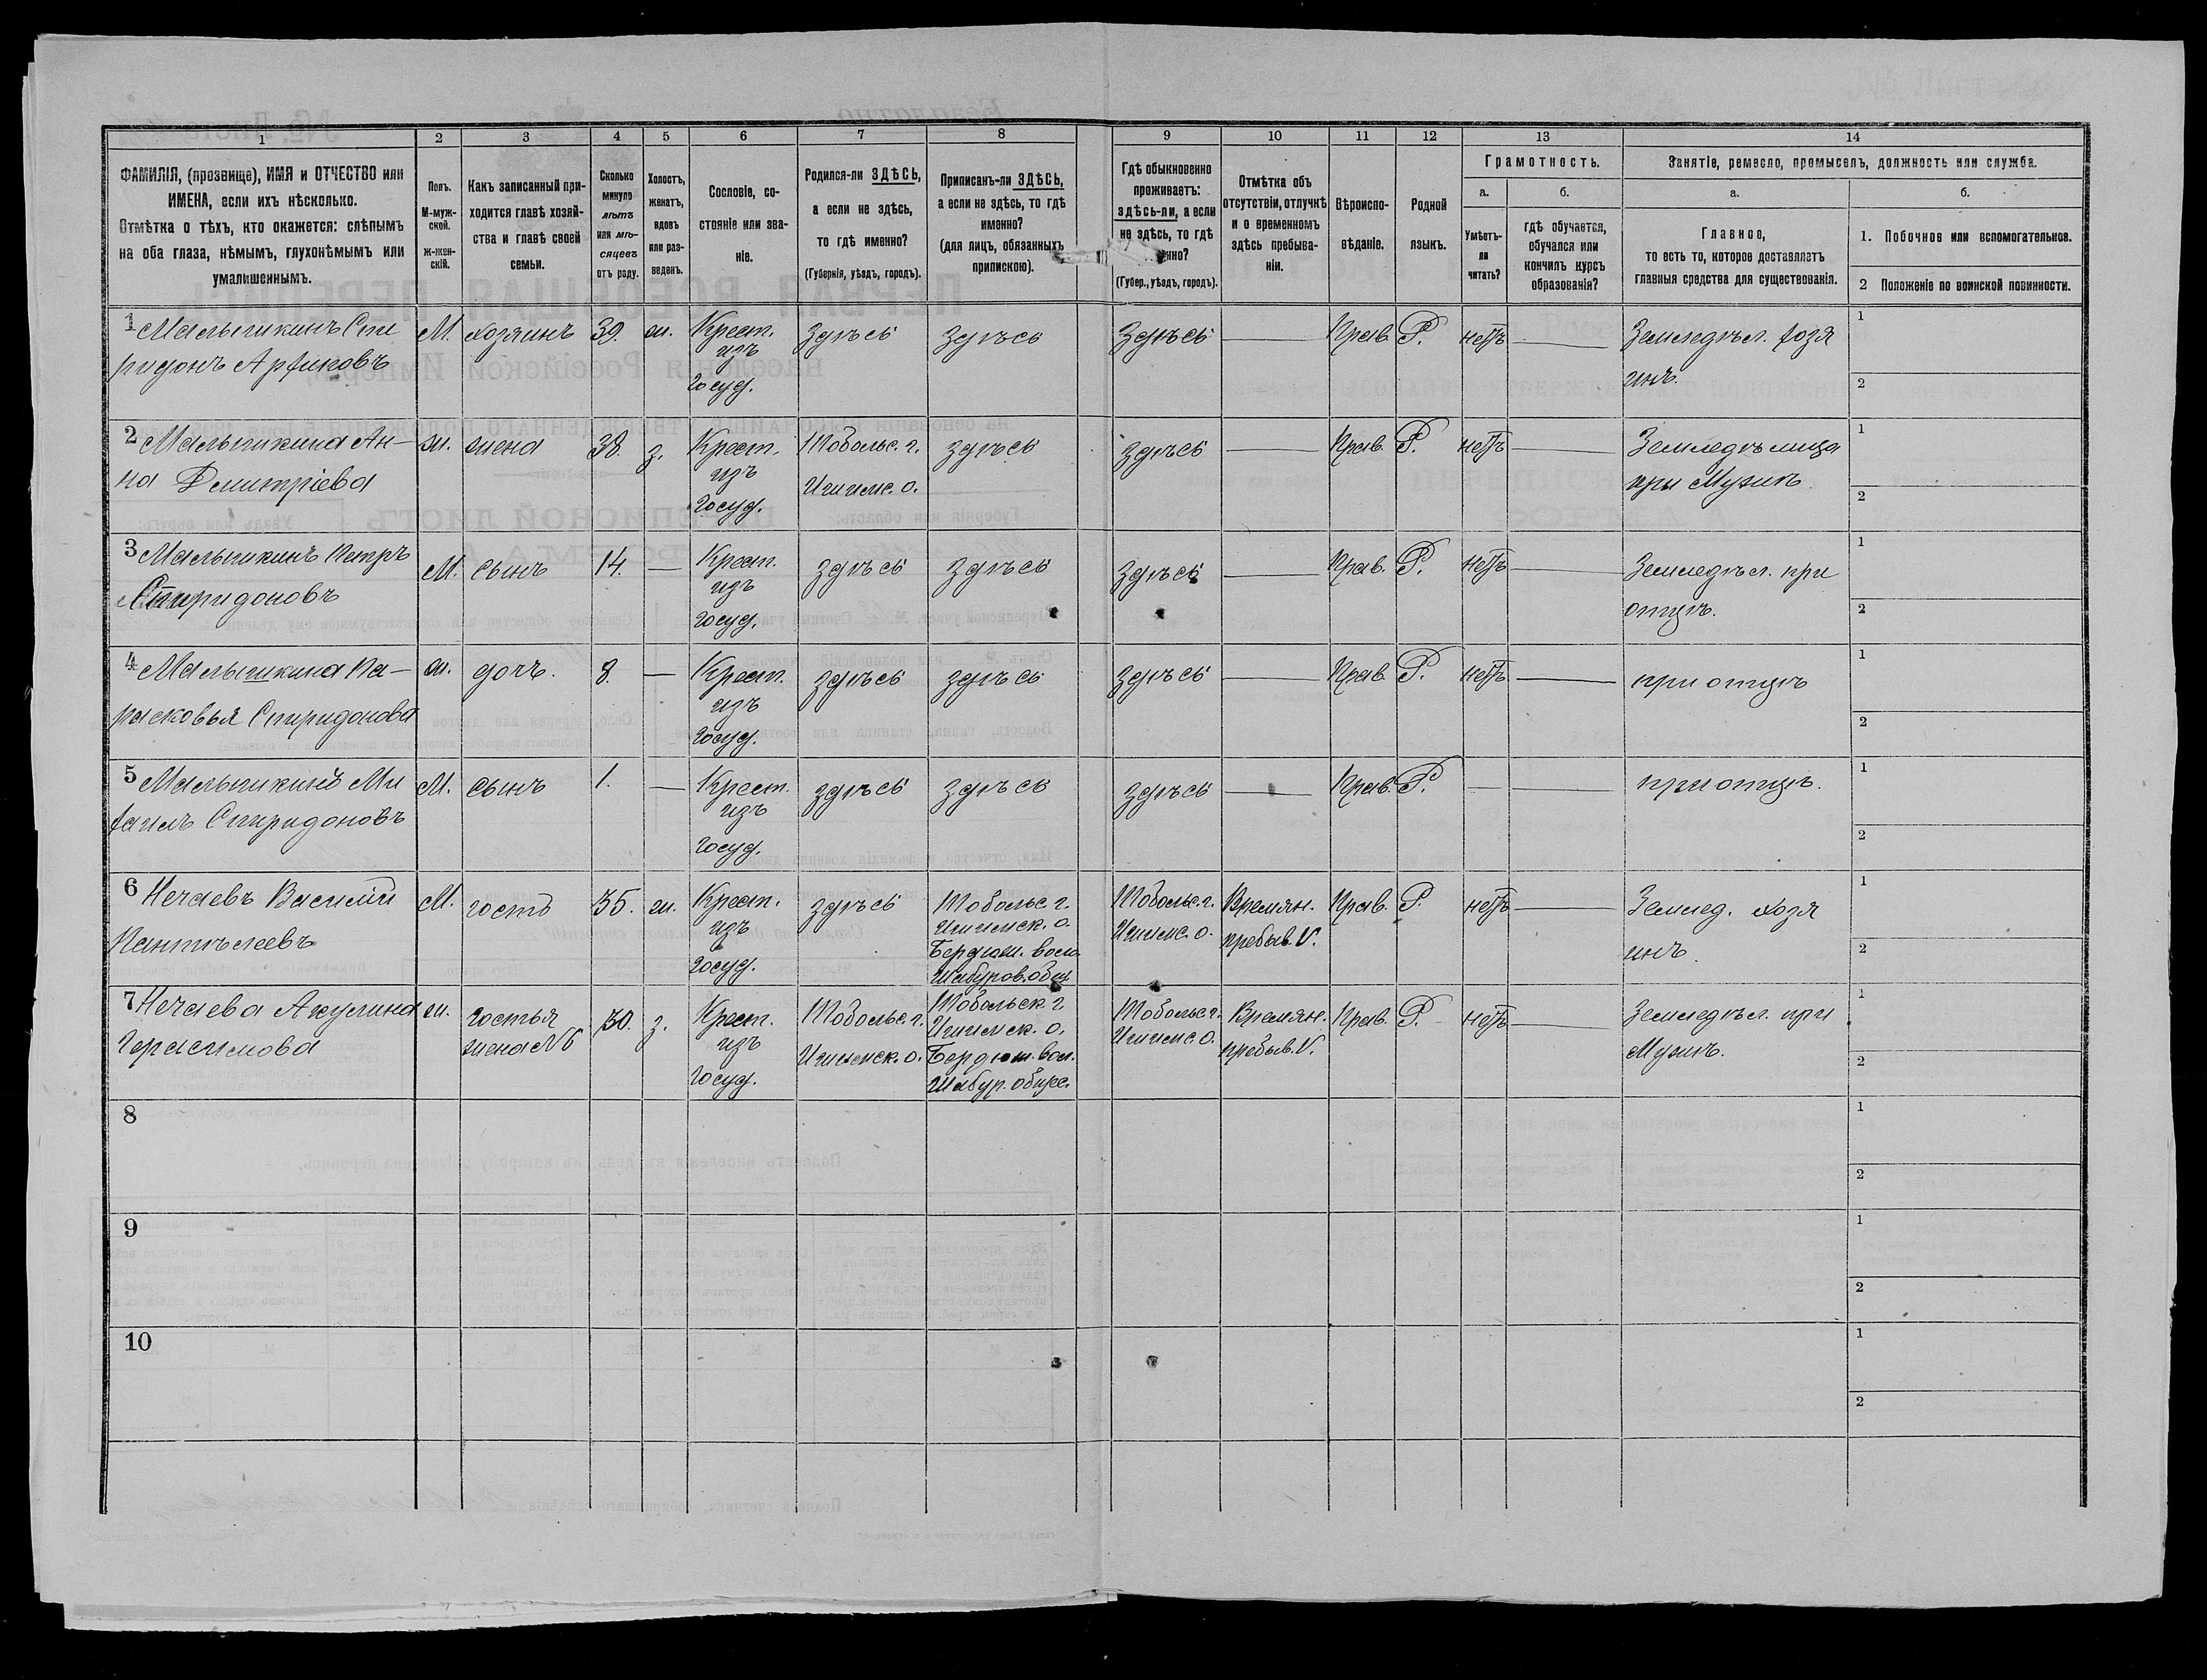 1
2
3
4
5
6
7
8
9
10
11
12
13
14
ФАМИЛІЯ, (прозвище), ИМЯ и ОТЧЕСТВО или
ИМЕНА, если ихъ нѣсколько.
Отмѣтка о тѣхъ, кто окажется: слѣпымъ
на оба глаза, нѣмымъ, глухонѣмымъ или
умалишеннымъ.
Полъ.
М-муж-
ской.
ж-жен-
скій.
Какъ записанный при-
ходится главѣ хозяй-
ства и главѣ своей
семьи.
Сколько
минуло
лѣтъ
или мѣ-
сяцевъ
отъ роду.
Холостъ,
женатъ,
вдовъ
или раз-
веденъ.
Сословіе, со-
стояніе или зва-
ніе.
Родился-ли ЗДѢСЬ,
а если не здѣсь,
то гдѣ именно?
(Губернія, уѣздъ, городъ).
Приписанъ-ли ЗДѢСЬ,
а если не здѣсь, то гдѣ
именно?
(для лицъ, обязанныхъ
припискою).
Гдѣ обыкновенно
проживаетъ:
здѣсь-ли, а если
не здѣсь, то гдѣ
(Губер., уѣздъ, городъ).
Отмѣтка объ
отсутствіи, отлучкѣ
и о временномъ
здѣсь пребыва-
ніи.
Вѣроиспо-
вѣданіе.
Родной
языкъ.
Грамотность.
а.
Умѣетъ-
ли
читать?
б.
гдѣ обучается,
обучался или
кончилъ курсъ
образованія?
Занятіе, ремесло, промыселъ, должность или служба.
а.
Главное,
то есть то, которое доставляетъ
главныя средства для существованія.
б.
1. Побочное или вспомогательное.
2 Положеніе по воинской повинности.
1 Малышкинъ Спи
ридонъ
М. хозяинъ 39. ж. Крест.
изъ
госуд.
здѣсь здѣсь здѣсь — Прав. Р. нетъ — Земледѣл. хозя
инъ.
1
2
2 Малышкина Ан-
на Дмитріева
ж. жена 38. з. Крест.
изъ
госуд.
Тобольс. г.
Ишимс. о.
здѣсь здѣсь — Прав. Р. нетъ — Земледѣлица
при Мужѣ.
1
2
3 Малышкинъ Петръ
Спиридоновъ
М. сынъ 14. — Крест.
изъ
госуд.
здѣсь здѣсь здѣсь — Прав. Р. нетъ — Земледѣл. при
отцѣ.
1
2
4 Малышкина Па-
расковья Спиридонова
ж. дочь. 8. — Крест.
изъ
госуд.
здѣсь здѣсь здѣсь — Прав. Р. нетъ — при отцѣ
1
2
5 Малышкинъ Ми
хаилъ Спиридоновъ
М. сынъ 1. — Крест.
изъ
госуд.
здѣсь здѣсь здѣсь — Прав. Р. — — при отцѣ.
1
2
6 Нечаевъ Василий
Пантѣлеевъ
М. гость 35. ж. Крест.
изъ
госуд.
здѣсь
Тобольс. г.
Ишимск. о.
Бердюж. воло.
Шабуров. общ.
Тобольс. г.
Ишимс. о.
Времян.
пребыв. V.
Прав. Р. нетъ — Землед. хозя
инъ.
1
2
7 Нечаева Акулина
Герасимова
ж. гостья
жена № 6
30. з. Крест.
изъ
госуд.
Тобольс. г.
Ишимск. о.
Тобольск г
Ишимск. о.
Бердюж. вол.
Шабур. общес.
Тобольс г.
Ишимс о.
Времян.
пребыв. V.
Прав. Р. нетъ — Земледѣл. при
Мужѣ.
1
2
8
1
2
9
1
2
10
1
2